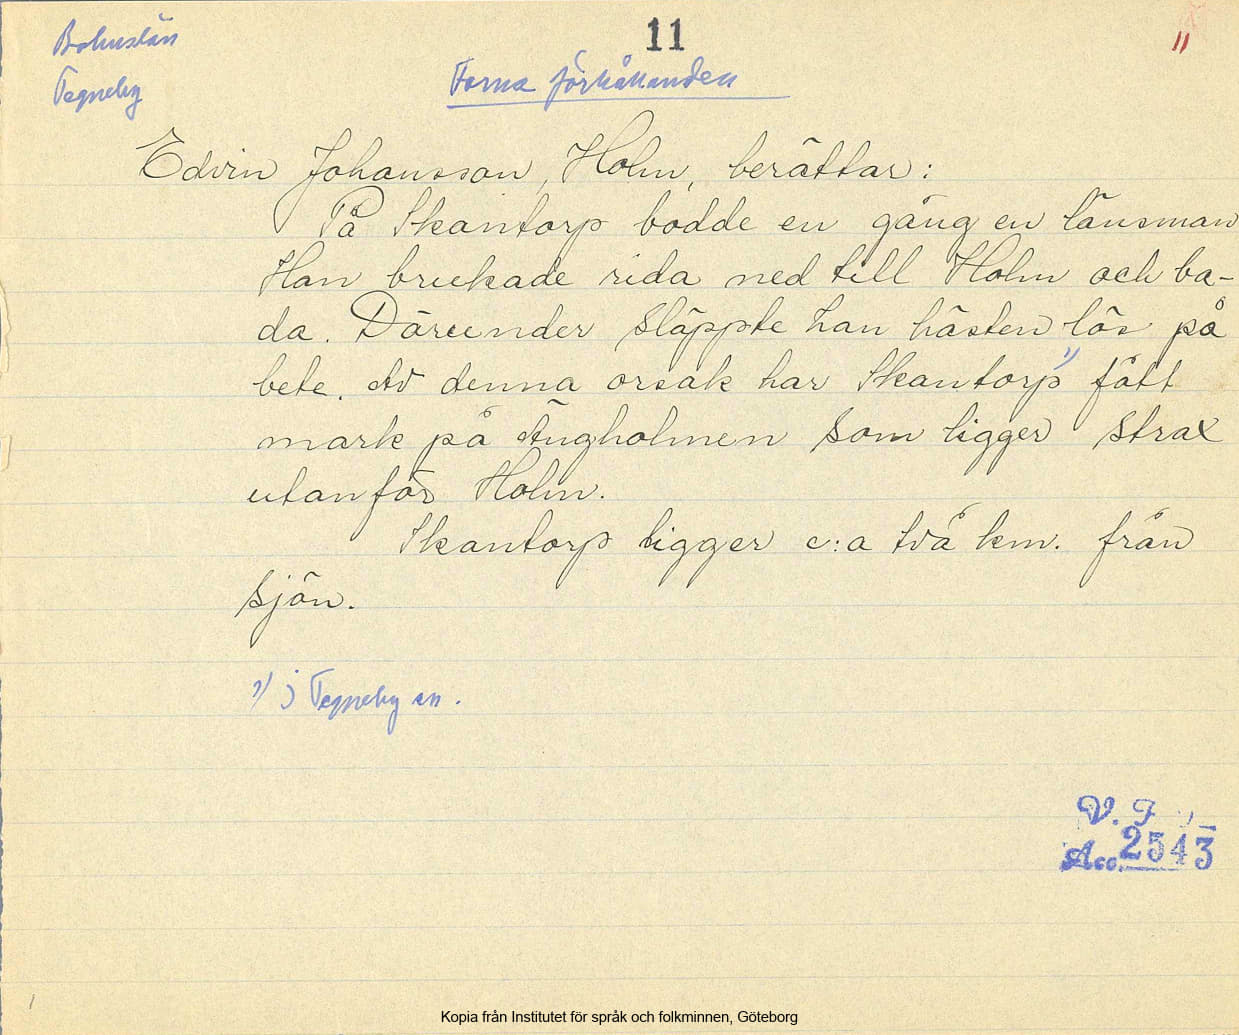 Bohuslän
Tegneby
11
11
Forna förhållanden
Edvin Johansson, Holm, berättar:
På Skantorp bodde en gång en länsman
Han brukade rida ned till Holm och ba-
da. Därunder släppte han hästen lös på
bete. Av denna orsak har Skantorp 1) fått
mark på Ängholmen som ligger strax
utanför Holm.
Skantorp ligger c:a två km. från
sjön.
1) i Tegneby sn.
V. F.
Acc. 2543
Kopia från Institutet för språk och folkminnen, Göteborg